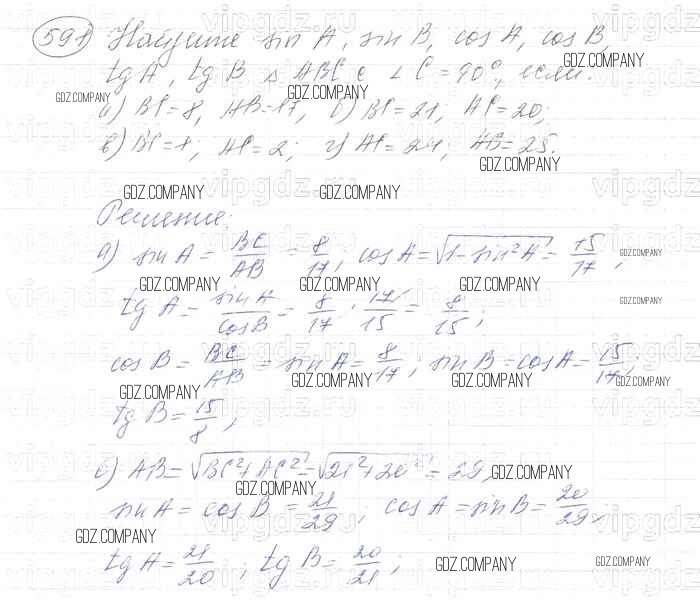 591 Найдите sin A, sin B, cos A, cos B,
tg A, tg B △ ABC с ∠C = 90°, если:
а) BC = 8, AB = 17, б) BC = 21, AC = 20;
в) BC = 1; AC = 2; г) AC = 24; AB = 25.
Решение:
а) sin A = BC/AB = 8/17, cos A = √(1 - sin²A) = 15/17,
tg A = sin A/cos B = 8/17 · 17/15 = 8/15;
cos B = BC/AB = sin A = 8/17; sin B = cos A = 15/17;
tg B = 15/8;
б) AB = √(BC² + AC²) = √(21² + 20²) = 29,
sin A = cos B = 21/29; cos A = sin B = 20/29;
tg A = 21/20; tg B = 20/21;